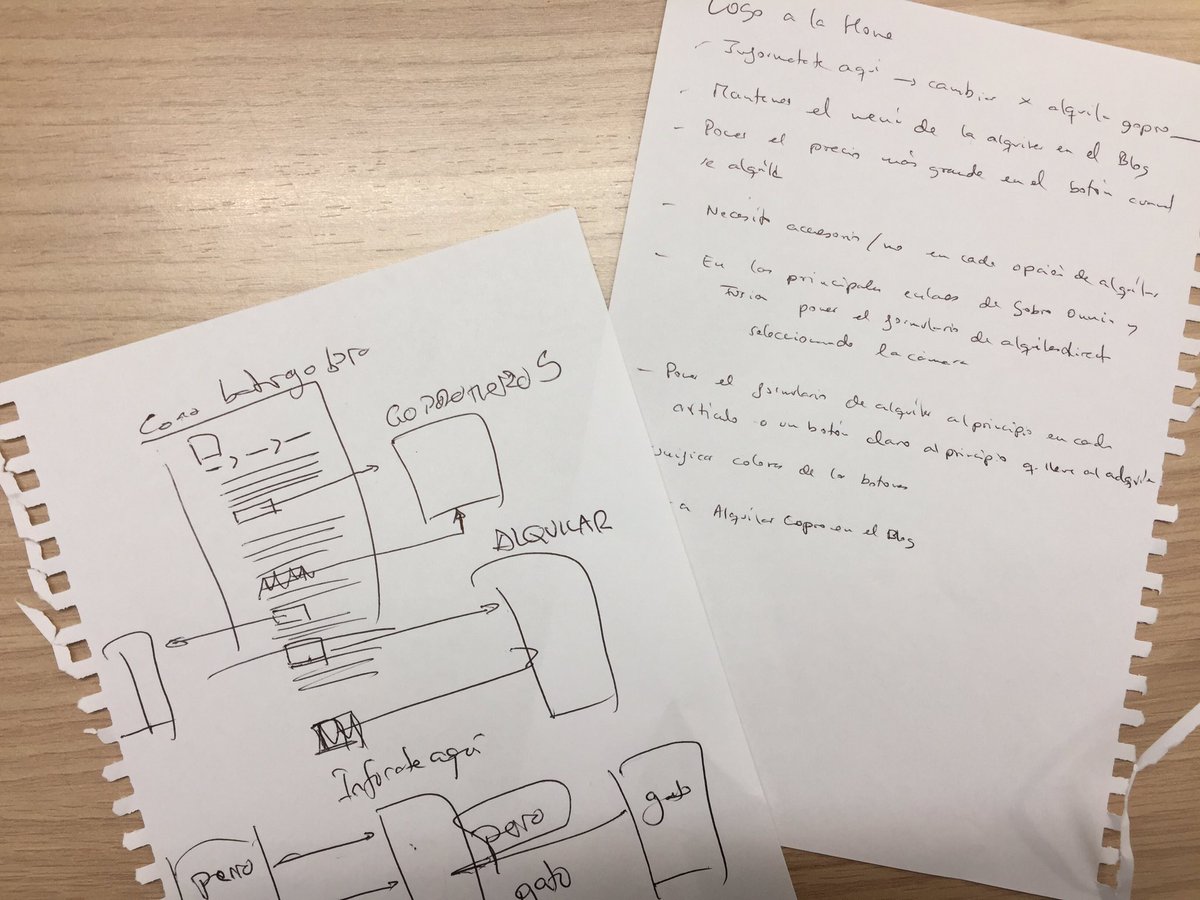 Logo a la Home
- Informatete aquí → cambiar x alquila gopro
- Mantener el menú de la alquiler en el Blog
- Poner el precio más grande en el botón cuand
se alquile
- Necesito accesorios/no en cada opción de alquiler
- En los principales enlaces de sobre Omni y
Fusion poner el formulario de alquiler direct
seleccionando la cámara
- Poner el formulario de alquiler al principio en cada
artículo o un botón claro al principio q lleve al
unificar colores de los botones
- a Alquilar Gopro en el Blog
Como
GOPRO HERO 5
ALQUILAR
Infórate aquí
perro
perro
gato
gato